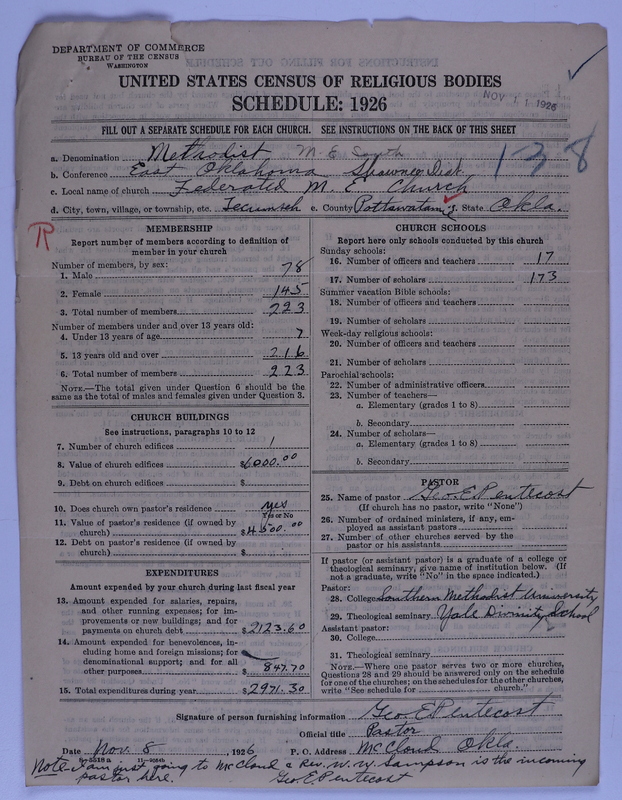 DEPARTMENT OF COMMERCE
BUREAU OF THE CENSUS
WASHINGTON
UNITED STATES CENSUS OF RELIGIOUS BODIES
SCHEDULE: 1926
NOV 11 1926
FILL OUT A SEPARATE SCHEDULE FOR EACH CHURCH. SEE INSTRUCTIONS ON THE BACK OF THIS SHEET
138
a. Denomination Methodist M. E. South
b. Conference East Oklahoma Shawnee Dist
c. Local name of church Federated M. E. Church
d. City, town, village, or township, etc. Tecumseh e. County Pottawatami State Okla.
R
MEMBERSHIP
Report number of members according to definition of member in your church
Number of members, by sex:
1. Male 78
2. Female 145
3. Total number of members 223
Number of members under and over 13 years old:
4. Under 13 years of age 7
5. 13 years old and over 216
6. Total number of members 223
NOTE.—The total given under Question 6 should be the same as the total of males and females given under Question 3.
CHURCH BUILDINGS
See instructions, paragraphs 10 to 12
7. Number of church edifices 1
8. Value of church edifices $6000.00
9. Debt on church edifices $
10. Does church own pastor's residence yes
Yes or No
11. Value of pastor's residence (if owned by church) $4500.00
12. Debt on pastor's residence (if owned by church) $
EXPENDITURES
Amount expended by your church during last fiscal year
13. Amount expended for salaries, repairs, and other running expenses; for improvements or new buildings; and for payments on church debt $2123.60
14. Amount expended for benevolences, including home and foreign missions; for denominational support; and for all other purposes $847.70
15. Total expenditures during year $2971.30
CHURCH SCHOOLS
Report here only schools conducted by this church
Sunday schools:
16. Number of officers and teachers 17
17. Number of scholars 173
Summer vacation Bible schools:
18. Number of officers and teachers
19. Number of scholars
Week-day religious schools:
20. Number of officers and teachers
21. Number of scholars
Parochial schools:
22. Number of administrative officers
23. Number of teachers—
a. Elementary (grades 1 to 8)
b. Secondary
24. Number of scholars—
a. Elementary (grades 1 to 8)
b. Secondary
PASTOR
25. Name of pastor Geo. E. Pentecost
(If church has no pastor, write "None")
26. Number of ordained ministers, if any, employed as assistant pastors
27. Number of other churches served by the pastor or his assistants
If pastor (or assistant pastor) is a graduate of a college or theological seminary, give name of institution below. (If not a graduate, write "No" in the space indicated.)
Pastor:
28. College Southern Methodist University
29. Theological seminary Yale Divinity School
Assistant pastor:
30. College
31. Theological seminary
NOTE.—Where one pastor serves two or more churches, Questions 28 and 29 should be answered only on the schedule for one of the churches; on the schedules for the other churches, write "See schedule for church."
Signature of person furnishing information Geo. E. Pentecost
Official title Pastor
Date Nov. 8, 1926 P. O. Address McCloud Okla.
Note I am just going to McCloud & Rev. W. W. Sampson is the incoming
pastor here. Geo. E. Pentecost